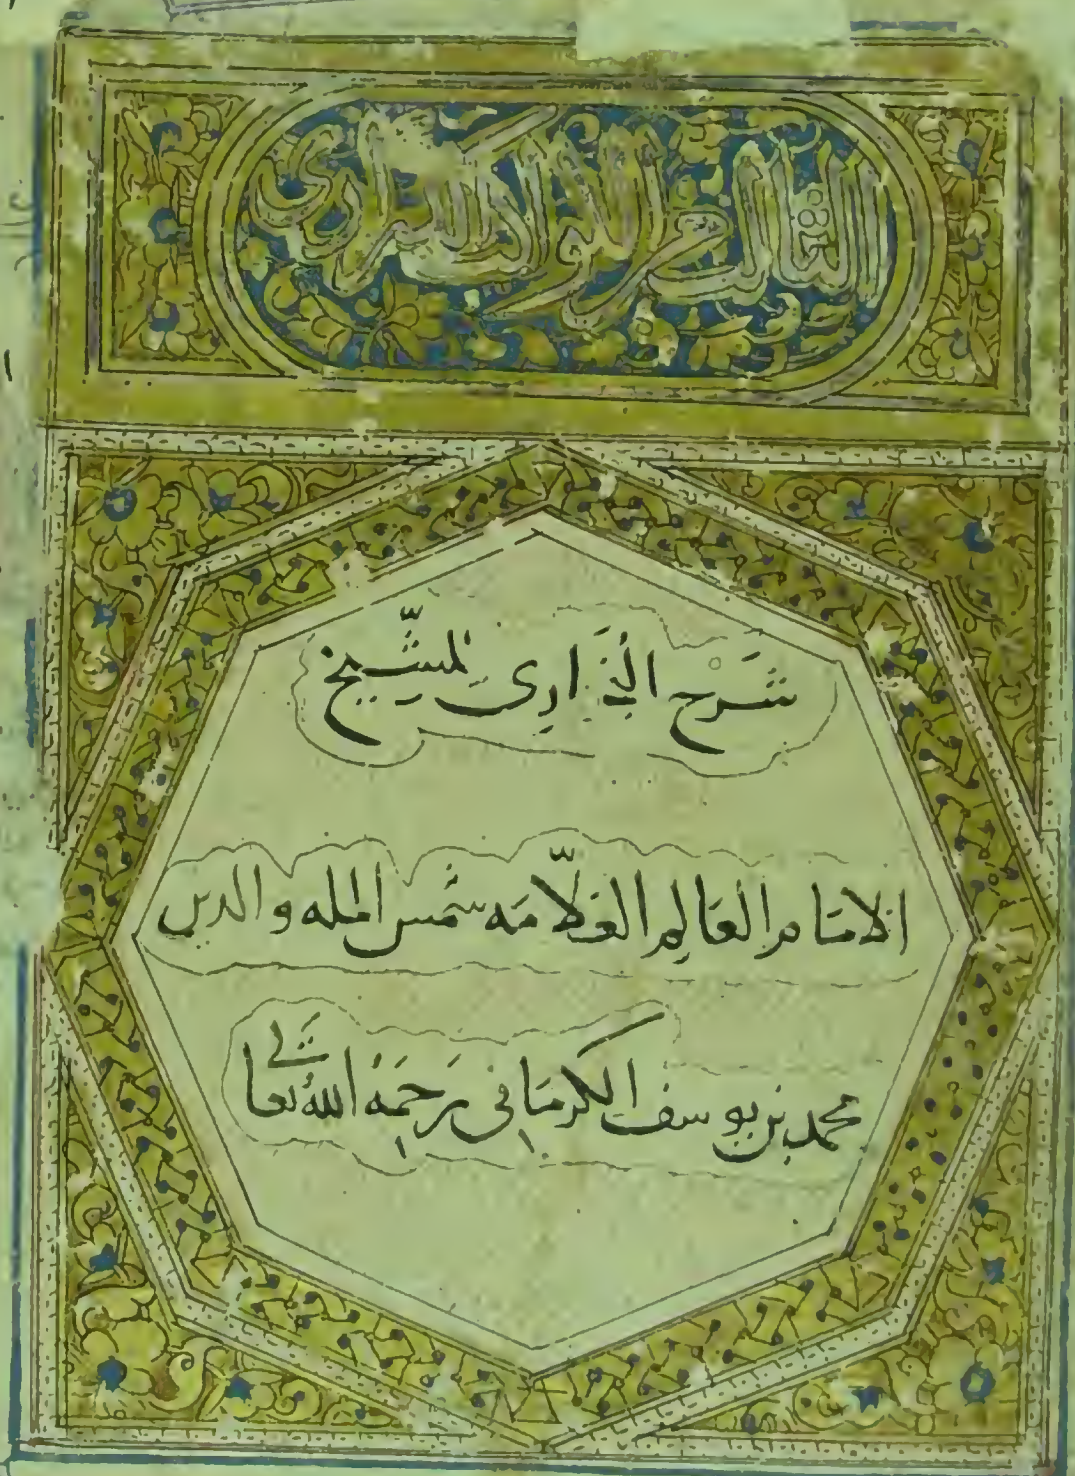 الكواكب الدرارى
شَرح البُخَارى للشّيخ
الامَام العَالِم العَلّامَه شمس المله والدين
محمد بن يوسف الكرمَانى رَحِمَهُ اللهُ تعَالى